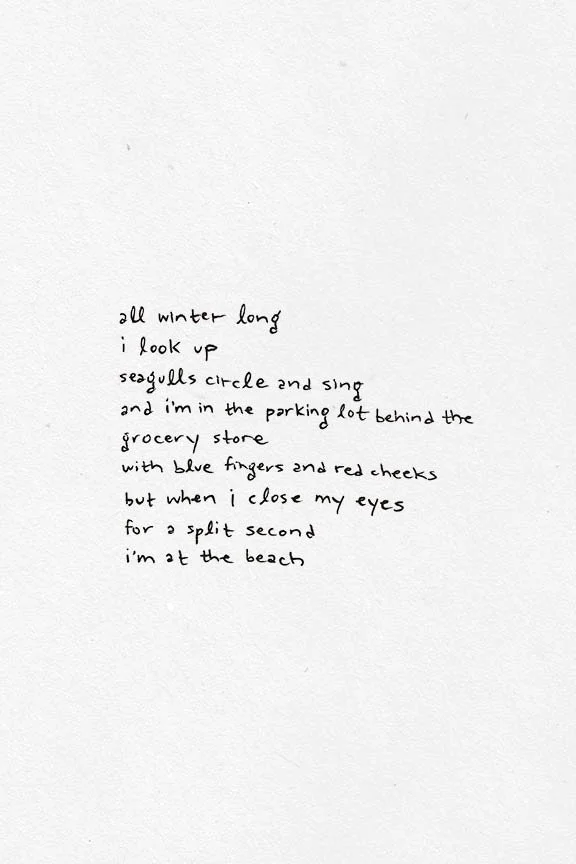 all winter long
i look up
seagulls circle and sing
and i'm in the parking lot behind the
grocery store
with blue fingers and red cheeks
but when i close my eyes
for a split second
i'm at the beach